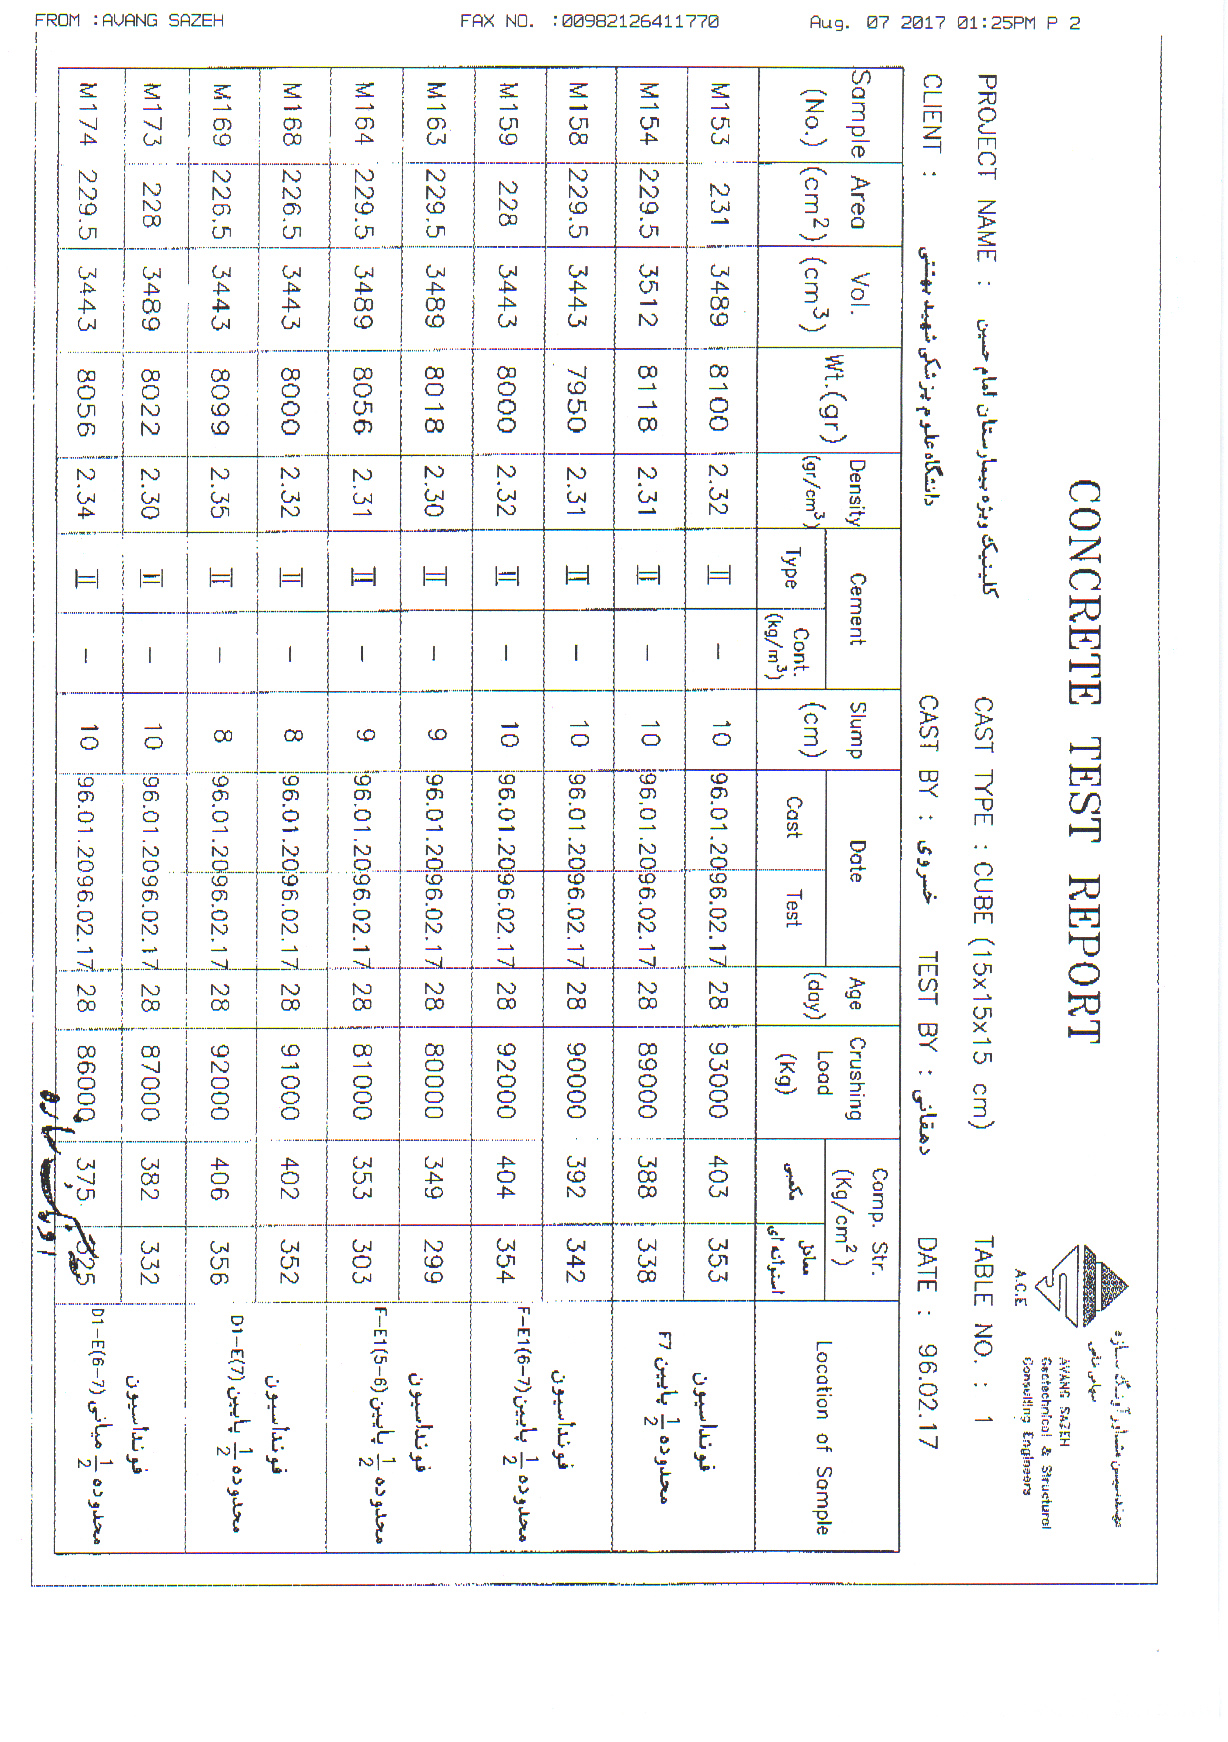 FROM :AVANG SAZEH FAX NO. :00982126411770 Aug. 07 2017 01:25PM P 2
CONCRETE TEST REPORT
مهندسین مشاور آونگ سازه
سهامی خاص
AVANG SAZEH
Geotechnical & Structural
Consulting Engineers
A.C.E
PROJECT NAME : کلینیک ویژه بیمارستان امام حسین CAST TYPE : CUBE (15x15x15 cm) TABLE NO. : 1
CLIENT : دانشگاه علوم پزشکی شهید بهشتی CAST BY : خسروی TEST BY : دهقانی DATE : 96.02.17
Sample (No.) Area (cm²) Vol. (cm³) Wt.(gr) Density (gr/cm³) Cement Type Cont. (kg/m³) Slump (cm) Date Cast Test Age (day) Crushing Load (Kg) Comp. Str. (Kg/cm²) مکعبی معادل استوانه ای Location of Sample
M153 231 3489 8100 2.32 II – 10 96.01.20 96.02.17 28 93000 403 353 فونداسیون
M154 229.5 3512 8118 2.31 II – 10 96.01.20 96.02.17 28 89000 388 338 محدوده 1/2 پایین F7
M158 229.5 3443 7950 2.31 II – 10 96.01.20 96.02.17 28 90000 392 342 فونداسیون
M159 228 3443 8000 2.32 II – 10 96.01.20 96.02.17 28 92000 404 354 محدوده 1/2 پایین F-E1(6-7)
M163 229.5 3489 8018 2.30 II – 9 96.01.20 96.02.17 28 80000 349 299 فونداسیون
M164 229.5 3489 8056 2.31 II – 9 96.01.20 96.02.17 28 81000 353 303 محدوده 1/2 پایین F-E1(5-6)
M168 226.5 3443 8000 2.32 II – 8 96.01.20 96.02.17 28 91000 402 352 فونداسیون
M169 226.5 3443 8099 2.35 II – 8 96.01.20 96.02.17 28 92000 406 356 محدوده 1/2 پایین D1-E(7)
M173 228 3489 8022 2.30 II – 10 96.01.20 96.02.17 28 87000 382 332 فونداسیون
M174 229.5 3443 8056 2.34 II – 10 96.01.20 96.02.17 28 86000 375 325 محدوده 1/2 میانی D1-E(6-7)